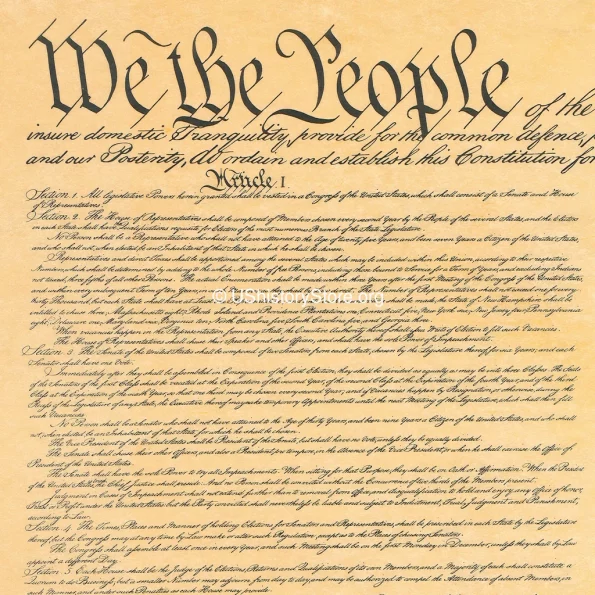 We the People of the
insure domestic Tranquility, provide for the common defence,
and our Posterity, do ordain and establish this Constitution for
Article. I.
Section. 1. All legislative Powers herein granted shall be vested in a Congress of the United States, which shall consist of a Senate and House
of Representatives.
Section. 2. The House of Representatives shall be composed of Members chosen every second Year by the People of the several States, and the Electors
in each State shall have Qualifications requisite for Electors of the most numerous Branch of the State Legislature.
No Person shall be a Representative who shall not have attained to the Age of twenty five Years, and been seven Years a Citizen of the United States,
and who shall not, when elected, be an Inhabitant of that State in which he shall be chosen.
Representatives and direct Taxes shall be apportioned among the several States which may be included within this Union, according to their respective
Numbers, which shall be determined by adding to the whole Number of free Persons, including those bound to Service for a Term of Years, and excluding Indians
not taxed, three fifths of all other Persons. The actual Enumeration shall be made within three Years after the first Meeting of the Congress of the United States,
and within every subsequent Term of ten Years, in such Manner as they shall by Law direct. The Number of Representatives shall not exceed one for every
thirty Thousand, but each State shall have at Least one Representative; and until such enumeration shall be made, the State of New Hampshire shall be
© UShistoryStore.org
entitled to chuse three, Massachusetts eight, Rhode Island and Providence Plantations one, Connecticut five, New York six, New Jersey four, Pennsylvania
eight, Delaware one, Maryland six, Virginia ten, North Carolina five, South Carolina five, and Georgia three.
When vacancies happen in the Representation from any State, the Executive Authority thereof shall issue Writs of Election to fill such Vacancies.
The House of Representatives shall chuse their Speaker and other Officers; and shall have the sole Power of Impeachment.
Section. 3. The Senate of the United States shall be composed of two Senators from each State, chosen by the Legislature thereof, for six Years; and each
Senator shall have one Vote.
Immediately after they shall be assembled in Consequence of the first Election, they shall be divided as equally as may be into three Classes. The Seats
of the Senators of the first Class shall be vacated at the Expiration of the second Year, of the second Class at the Expiration of the fourth Year, and of the third
Class at the Expiration of the sixth Year, so that one third may be chosen every second Year; and if Vacancies happen by Resignation, or otherwise, during the
Recess of the Legislature of any State, the Executive thereof may make temporary Appointments until the next Meeting of the Legislature, which shall then fill
such Vacancies.
No Person shall be a Senator who shall not have attained to the Age of thirty Years, and been nine Years a Citizen of the United States, and who shall
not, when elected, be an Inhabitant of that State for which he shall be chosen.
The Vice President of the United States shall be President of the Senate, but shall have no Vote, unless they be equally divided.
The Senate shall chuse their other Officers, and also a President pro tempore, in the Absence of the Vice President, or when he shall exercise the Office of
President of the United States.
The Senate shall have the sole Power to try all Impeachments. When sitting for that Purpose, they shall be on Oath or Affirmation. When the President
of the United States is tried, the Chief Justice shall preside: And no Person shall be convicted without the Concurrence of two thirds of the Members present.
Judgment in Cases of Impeachment shall not extend further than to removal from Office, and disqualification to hold and enjoy any Office of honor,
Trust or Profit under the United States: but the Party convicted shall nevertheless be liable and subject to Indictment, Trial, Judgment and Punishment,
according to Law.
Section. 4. The Times, Places and Manner of holding Elections for Senators and Representatives, shall be prescribed in each State by the Legislature
thereof; but the Congress may at any time by Law make or alter such Regulations, except as to the Places of chusing Senators.
The Congress shall assemble at least once in every Year, and such Meeting shall be on the first Monday in December, unless they shall by Law
appoint a different Day.
Section. 5. Each House shall be the Judge of the Elections, Returns and Qualifications of its own Members, and a Majority of each shall constitute a
Quorum to do Business; but a smaller Number may adjourn from day to day, and may be authorized to compel the Attendance of absent Members, in
such Manner, and under such Penalties as each House may provide.